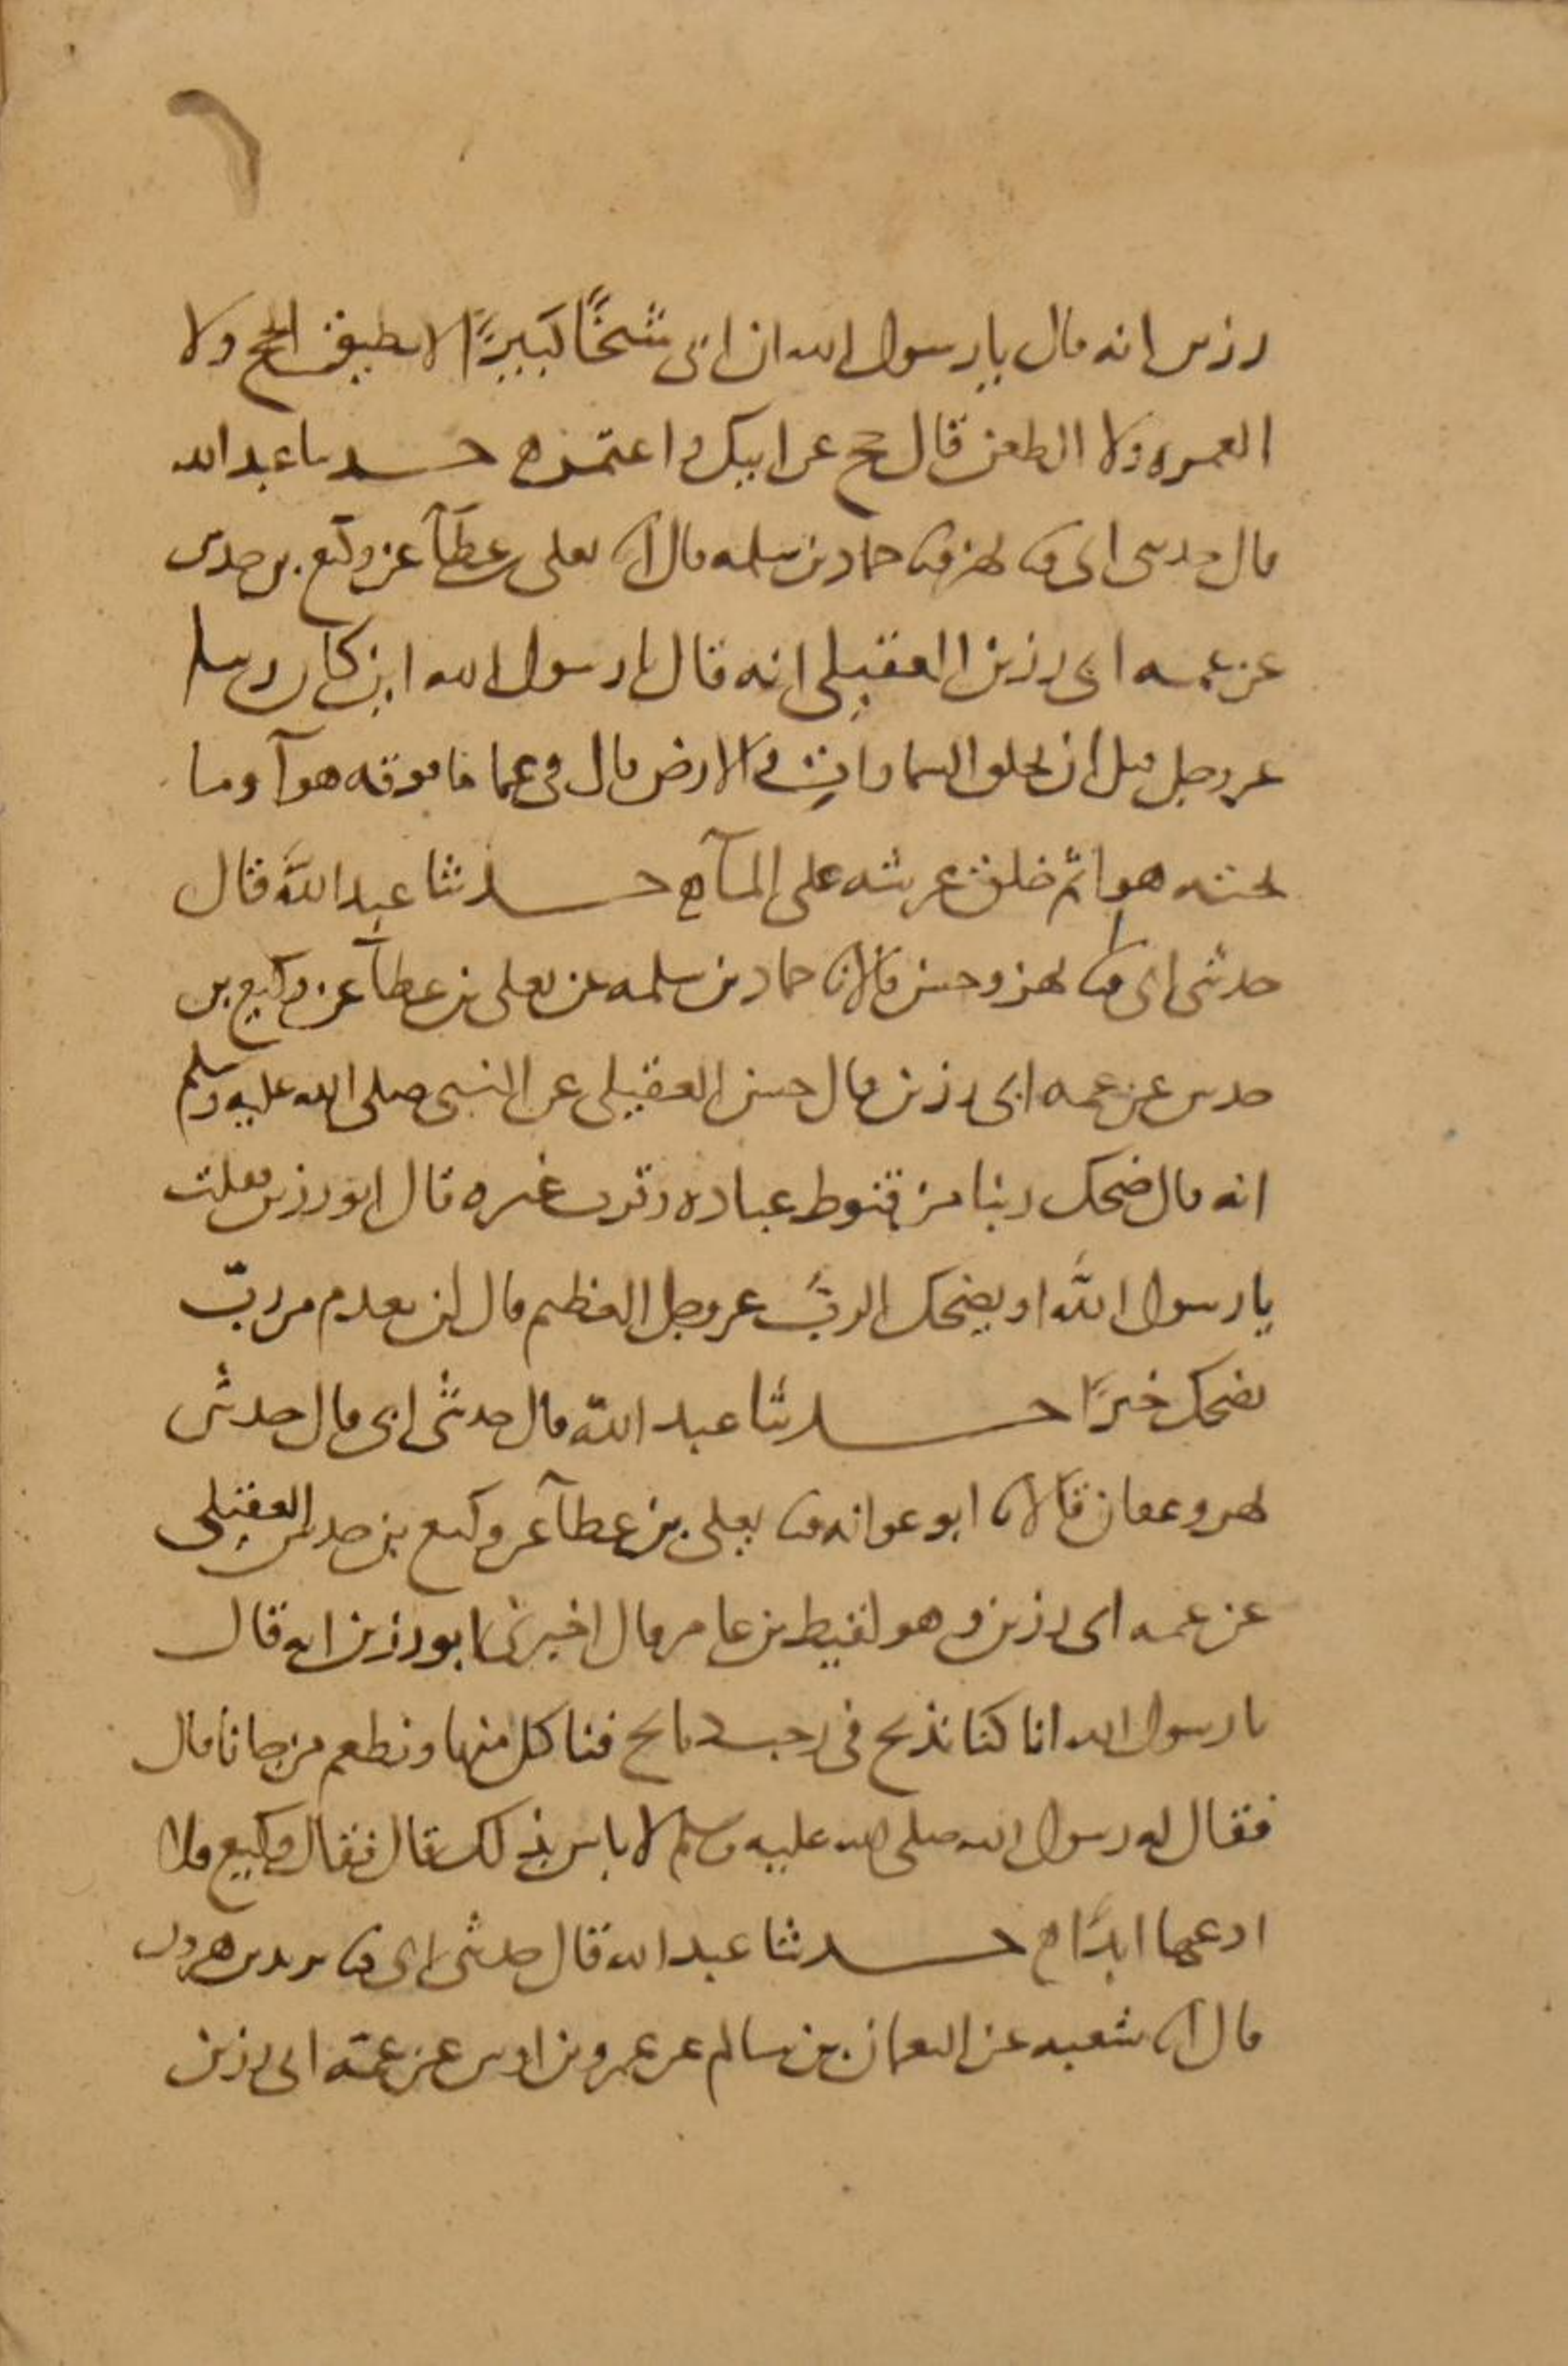 رزين انه قال يا رسول الله ان ابى شيخًا كبيرًا لا يطيق الحج ولا
العمره ولا الظعن قال حج عن ابيك واعتمر ه حدثنا عبد الله
قال حدثنى ابى ثنا بهز ثنا حماد بن سلمه قال انا يعلى بن عطآ عن وكيع بن حدس
عن عمه ابى رزين العقيلى انه قال يا رسول الله اين كان ربنا
عز وجل قبل ان يخلق السماوات والارض قال فى عما ما فوقه هوآ وما
تحته هوا ثم خلق عرشه على المآ ه حدثنا عبد الله قال
حدثنى ابى ثنا بهز وحسن قالا ثنا حماد بن سلمه عن يعلى بن عطآ عن وكيع بن
حدس عن عمه ابى رزين قال حسن العقيلى عن النبى صلى الله عليه وسلم
انه قال ضحك ربنا من قنوط عباده وقرب غيره قال ابو رزين فقلت
يا رسول الله او يضحك الربّ عز وجل العظيم قال لن نعدم من ربّ
يضحك خيرًا حدثنا عبد الله قال حدثنى ابى قال حدثنى
بهز وعفان قالا ثنا ابو عوانه ثنا يعلى بن عطآ عن وكيع بن حدس العقيلى
عن عمه ابى رزين وهو لقيط بن عامر قال اخبرنى ابو رزين انه قال
يا رسول الله انا كنا نذبح فى رجب ذبايح فناكل منها ونطعم من جانا قال
فقال له رسول الله صلى الله عليه وسلم لا باس بذلك قال فقال وكيع فلا
ادعها ابدًا ه حدثنا عبد الله قال حدثنى ابى ثنا يزيد بن هرون
قال انا شعبه عن النعمان بن سالم عن عمرو بن اوس عن عمّه ابى رزين